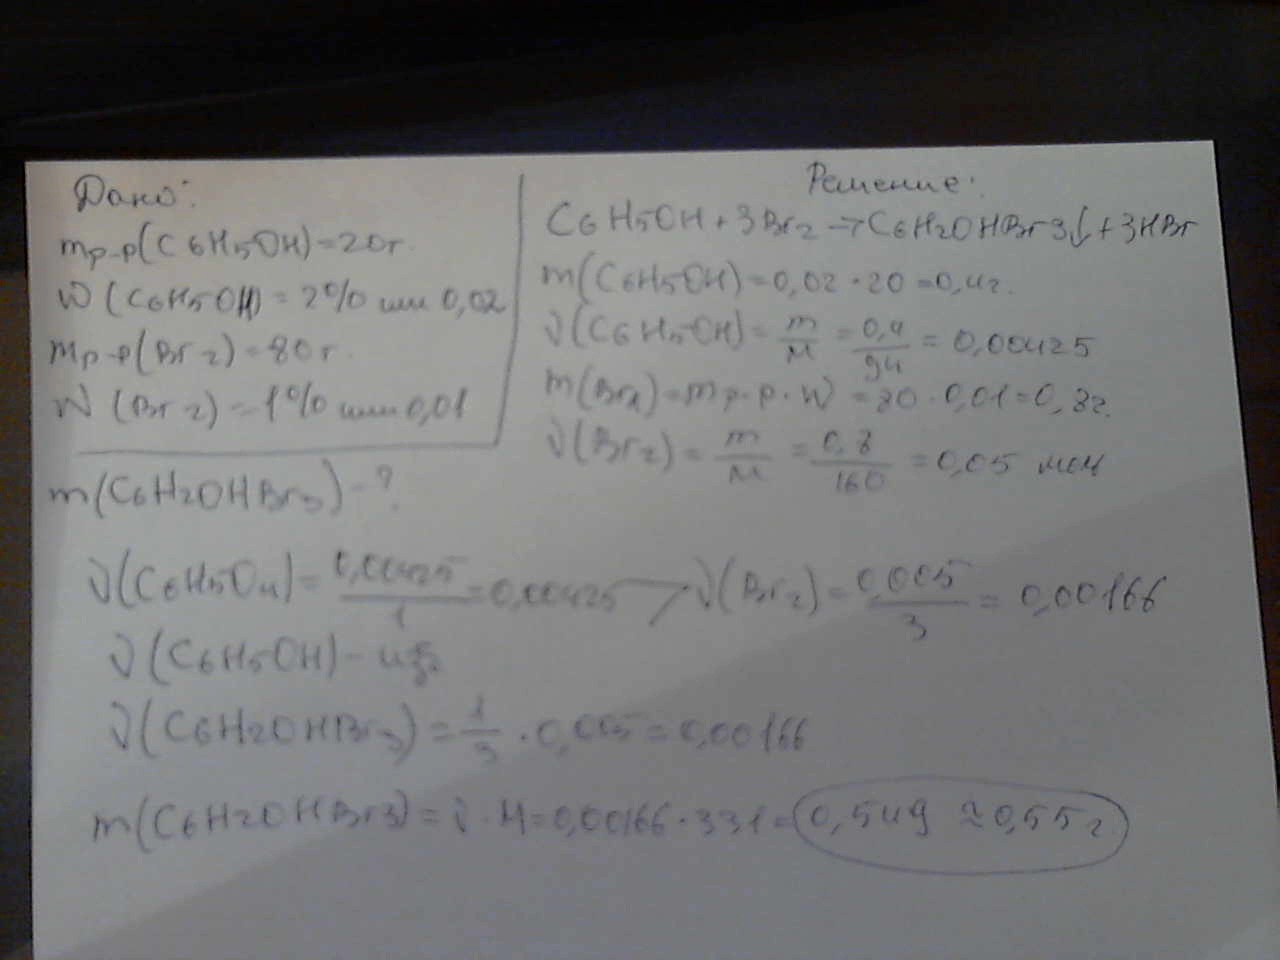 Дано:
mр-р(C6H5OH)=20г.
W(C6H5OH)=2% или 0,02
mр-р(Br2)=80г.
W(Br2)=1% или 0,01
m(C6H2OHBr3)-?
Решение:
C6H5OH+3Br2→C6H2OHBr3↓+3HBr
m(C6H5OH)=0,02·20=0,4г.
ν(C6H5OH)=m/M=0,4/94=0,00425
m(Br2)=mр-р·W=80·0,01=0,8г.
ν(Br2)=m/M=0,8/160=0,05 мол
ν(C6H5OH)=0,00425/1=0,00425>ν(Br2)=0,005/3=0,00166
ν(C6H5OH)-изб
ν(C6H2OHBr3)=1/3·0,005=0,00166
m(C6H2OHBr3)=ν·M=0,00166·331=0,549≈0,55г